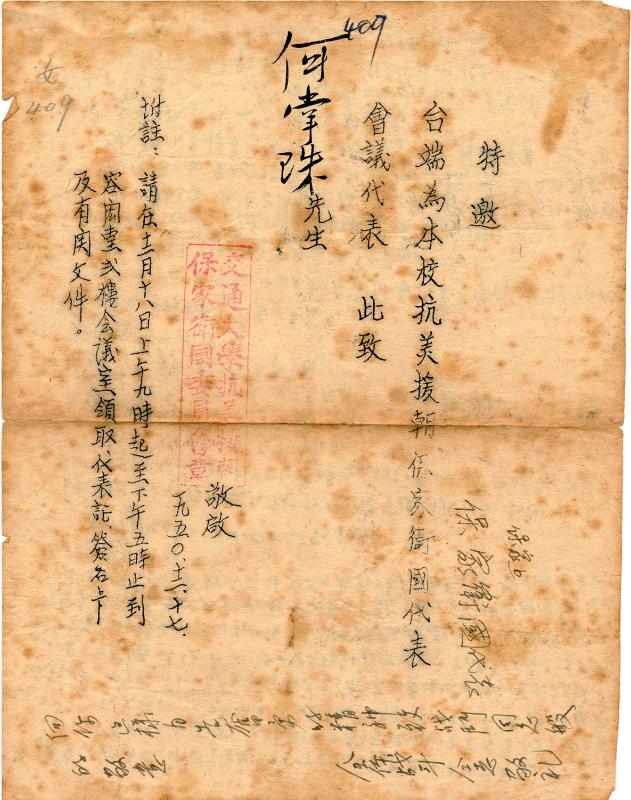 特邀
台端為本校抗美援朝保家衛國代表
會議代表 此致
何掌珠先生
409
敬啟
一九五〇·十二·十七·
交通大學抗美援朝
保家衛國委員會章
附註：請在十二月十八日上午九時起至下午五時止到
容闳堂弍樓会議室領取、代表証、簽名卡
及有関文件。
女
409
保家衛國代表